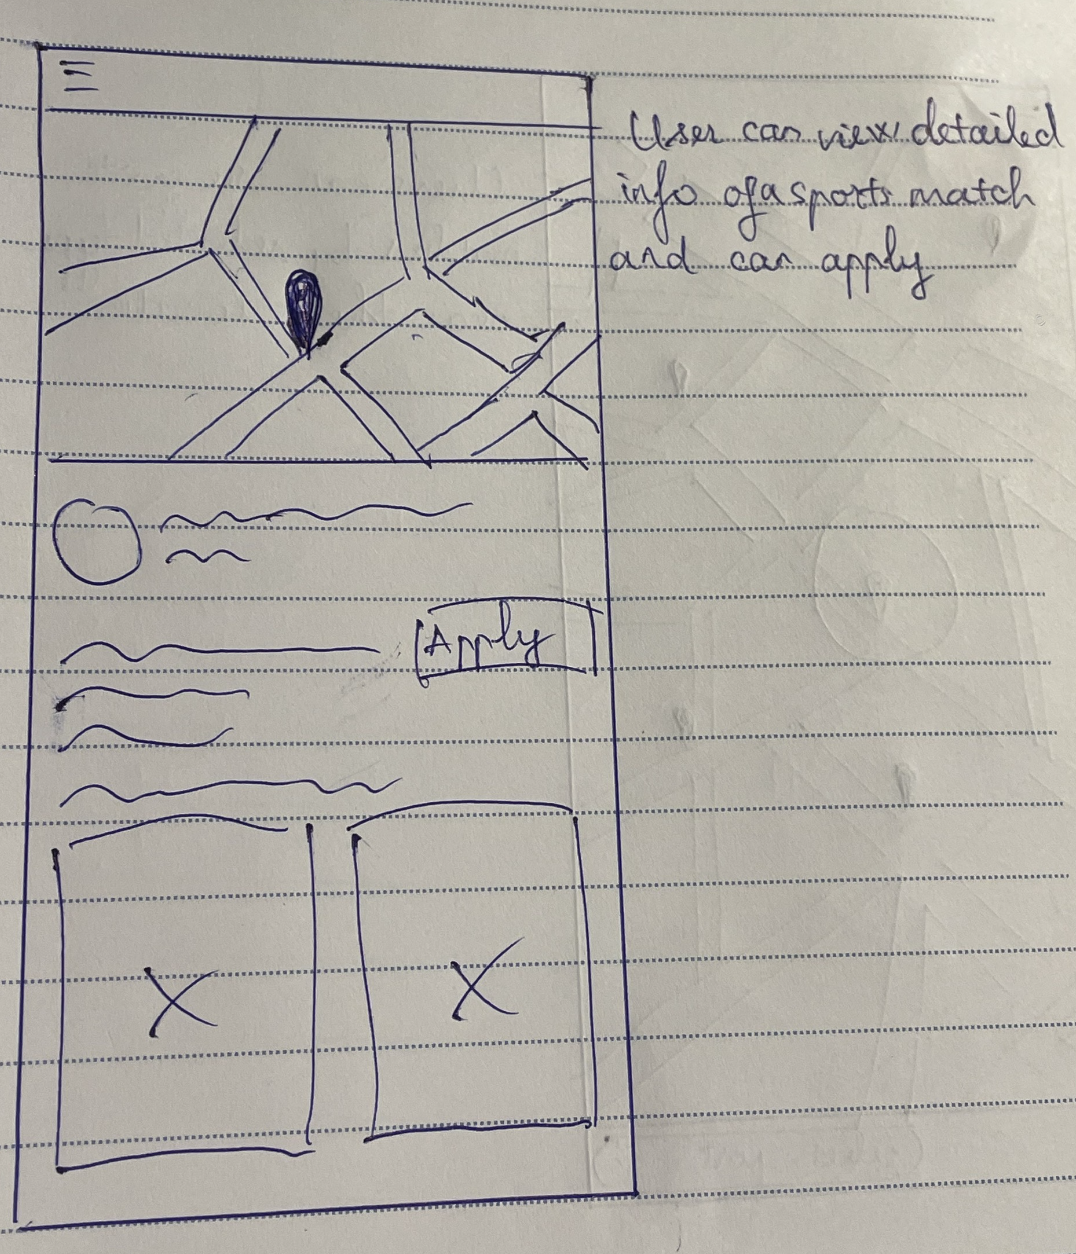 User can view detailed
info of a sports match
and can apply
Apply